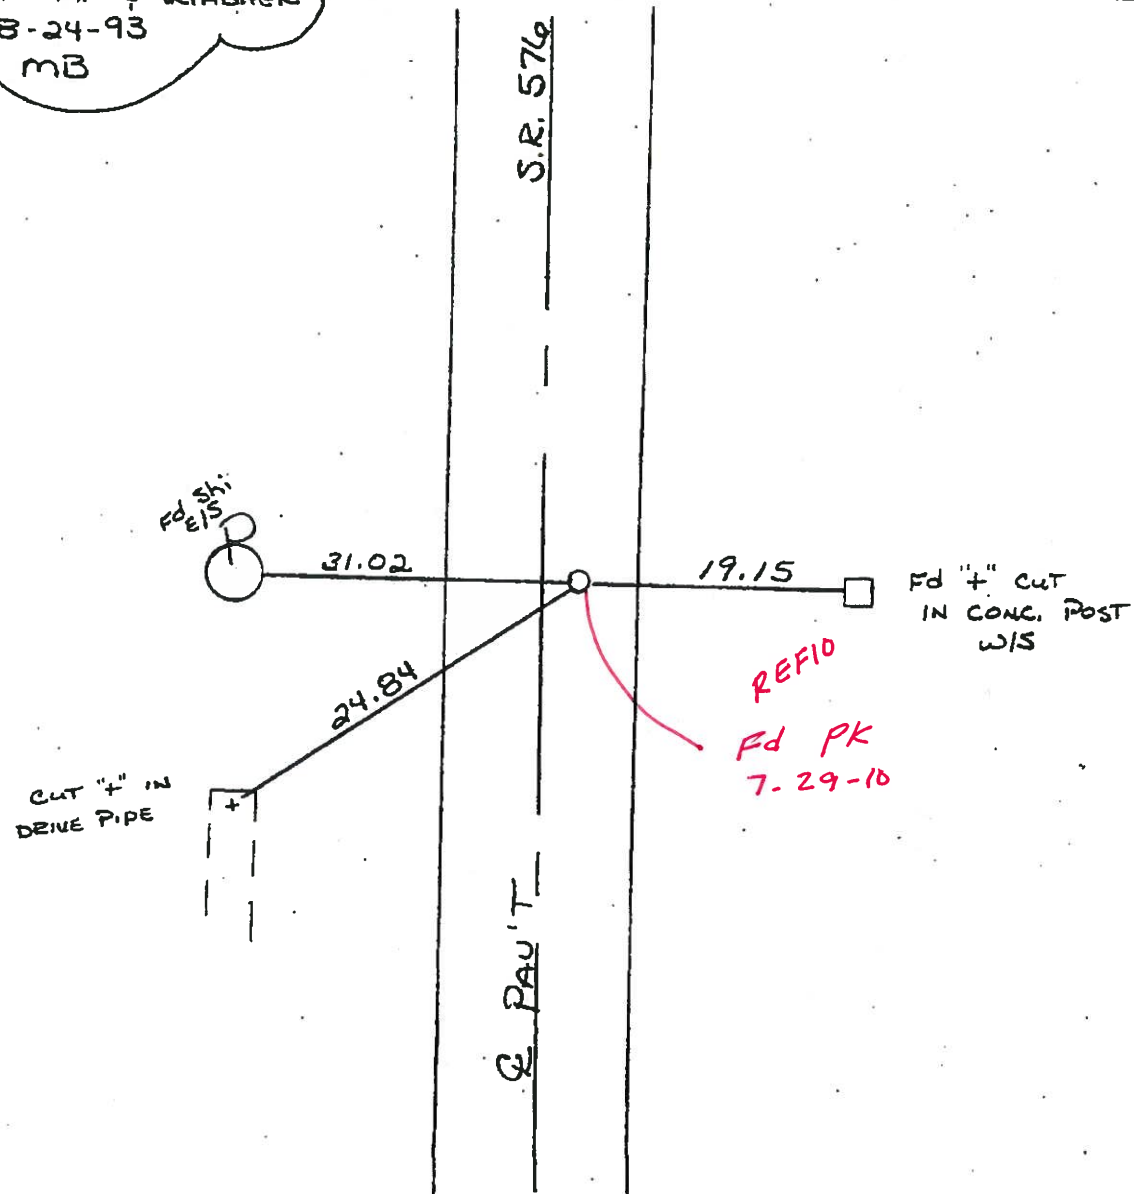 & WASHER
8-24-93
MB
S.R. 576
Fd Shi
E/S
31.02
19.15
Fd "+" CUT
IN CONC. POST
W/S
24.84
REF10
Fd PK
7-29-10
CUT "+" IN
DRIVE PIPE
+
℄ PAV'T